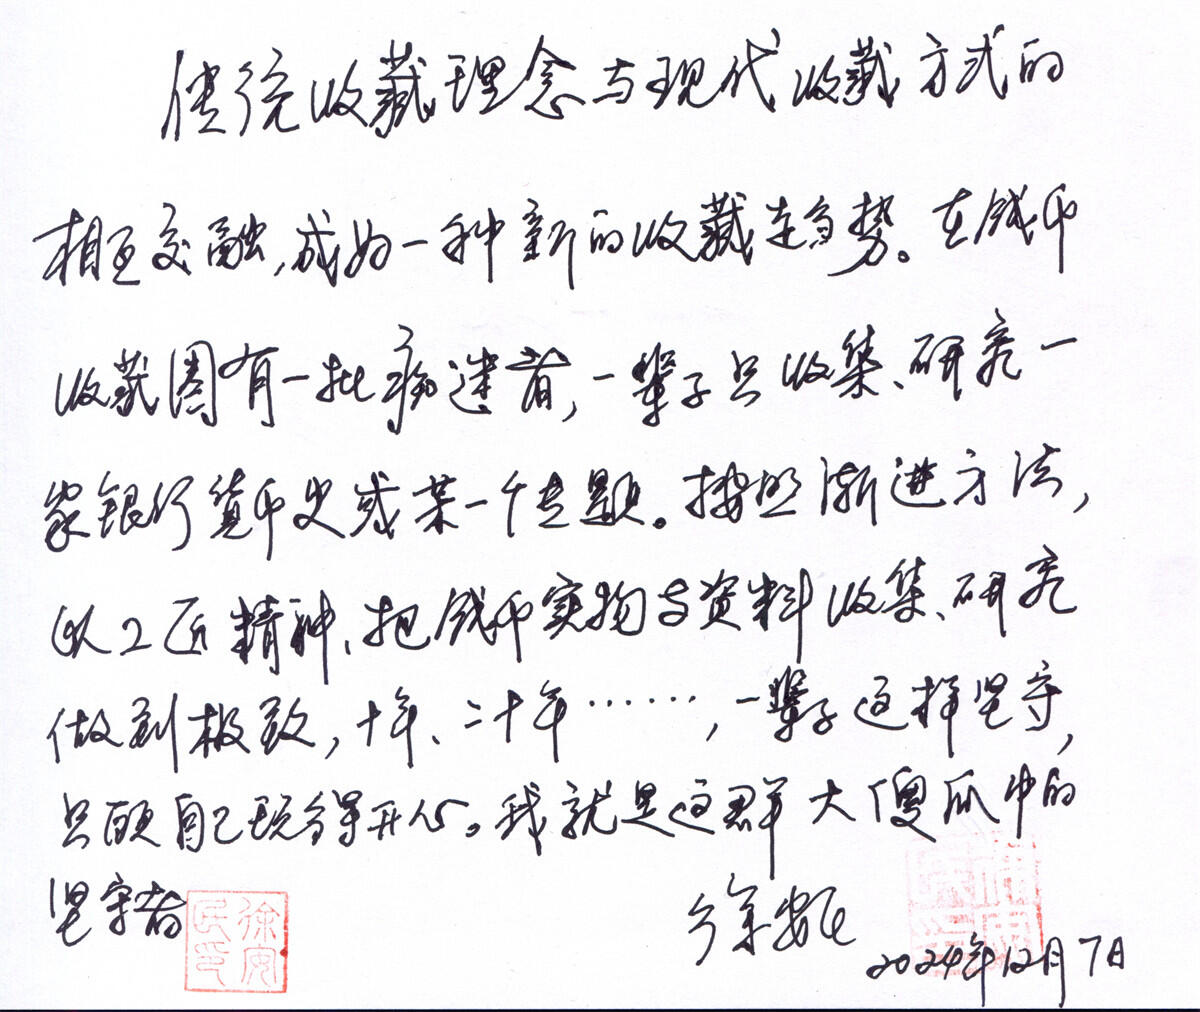 传统收藏理念与现代收藏方式的
相互交融,成为一种新的收藏趋势。在钱币
收藏圈有一批痴迷者,一辈子只收集、研究一
家银行货币史或某一个专题。按照渐进方法,
以工匠精神、把钱币实物与资料收集、研究
做到极致,十年、二十年……,一辈子这样坚守,
只顾自己玩得开心。我就是这群大傻瓜中的
坚守者
徐安民印
徐安民
2024年12月7日